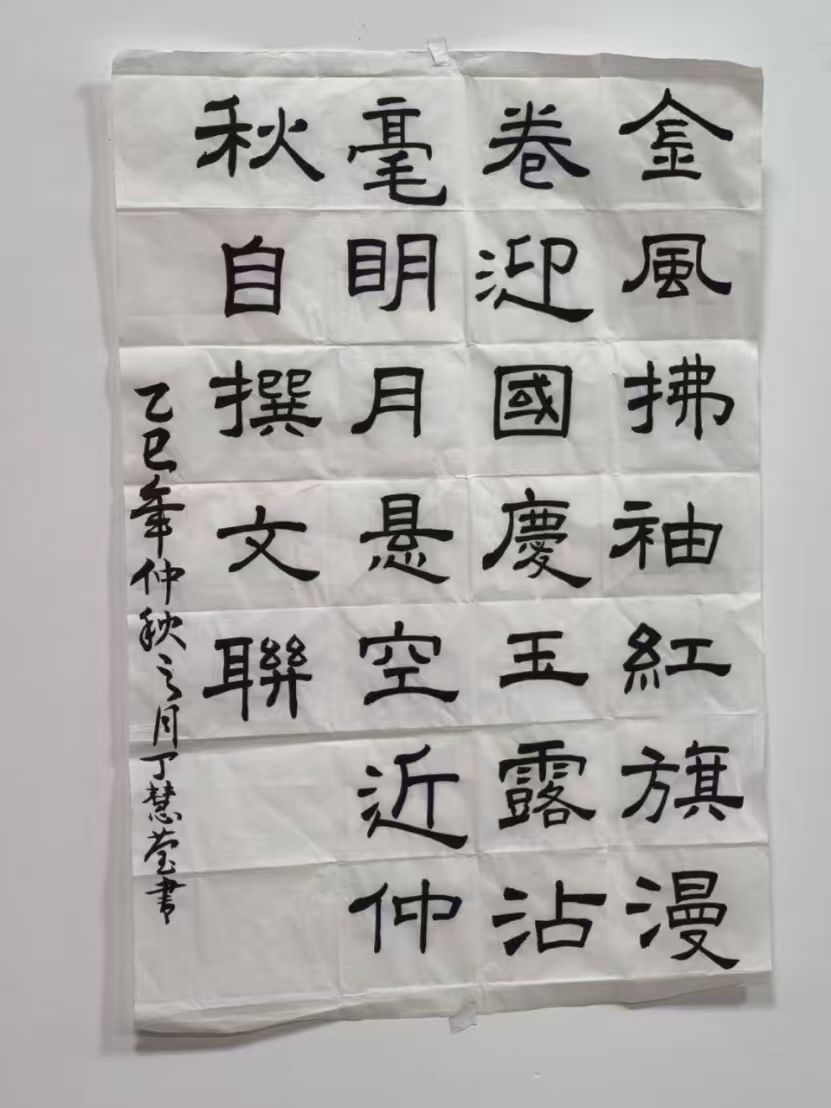 金風拂袖紅旗漫
卷迎國慶玉露沾
毫明月悬空近仲
秋自撰文聯
乙巳年仲秋之月丁慧莹書